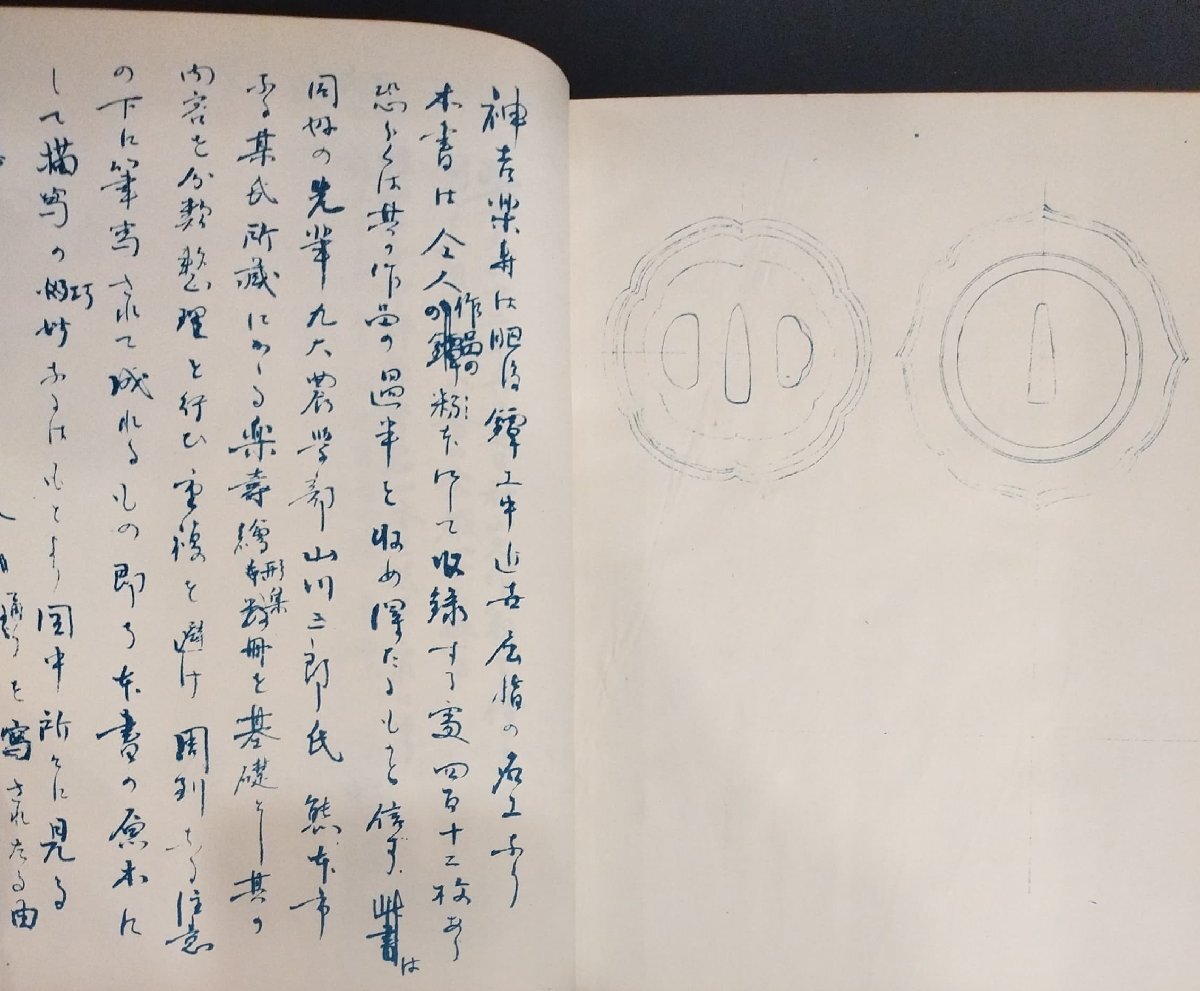 神吉楽寿は肥後鐔工中近世屈指の名工なり
本書は仝人の作品の粉本にして収録する処四百十二枚あり
恐らくは其の作品の過半を収め得たるものと信ず 此書は
同好の先輩九大農学部山川三郎氏 熊本市
なる某氏所蔵にかゝる楽寿鐔形集数冊を基礎とし其の
内容を分類整理を行ひ重複を避け周到なる注意
の下に筆写されて成れるもの即ち本書の原本に
して描写の巧妙なるはもとより図中所々に見る
を写されたる由